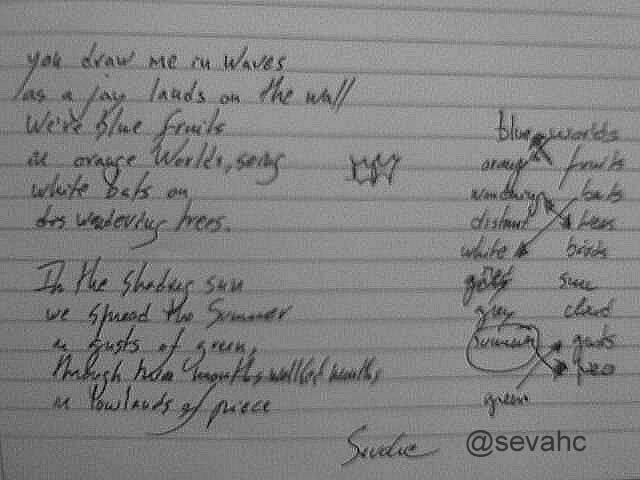 you draw me in waves
as a jay lands on the wall
We're blue fruits
in orange Worlds, seing
white bats on
wandering trees.
In the shading sun
we spread the Summer
in gusts of green,
through
in lowlands of piece
blue worlds
orange fruits
wandering bats
distant trees
white birds
sun
grey cloud
summer gusts
green
@sevahc